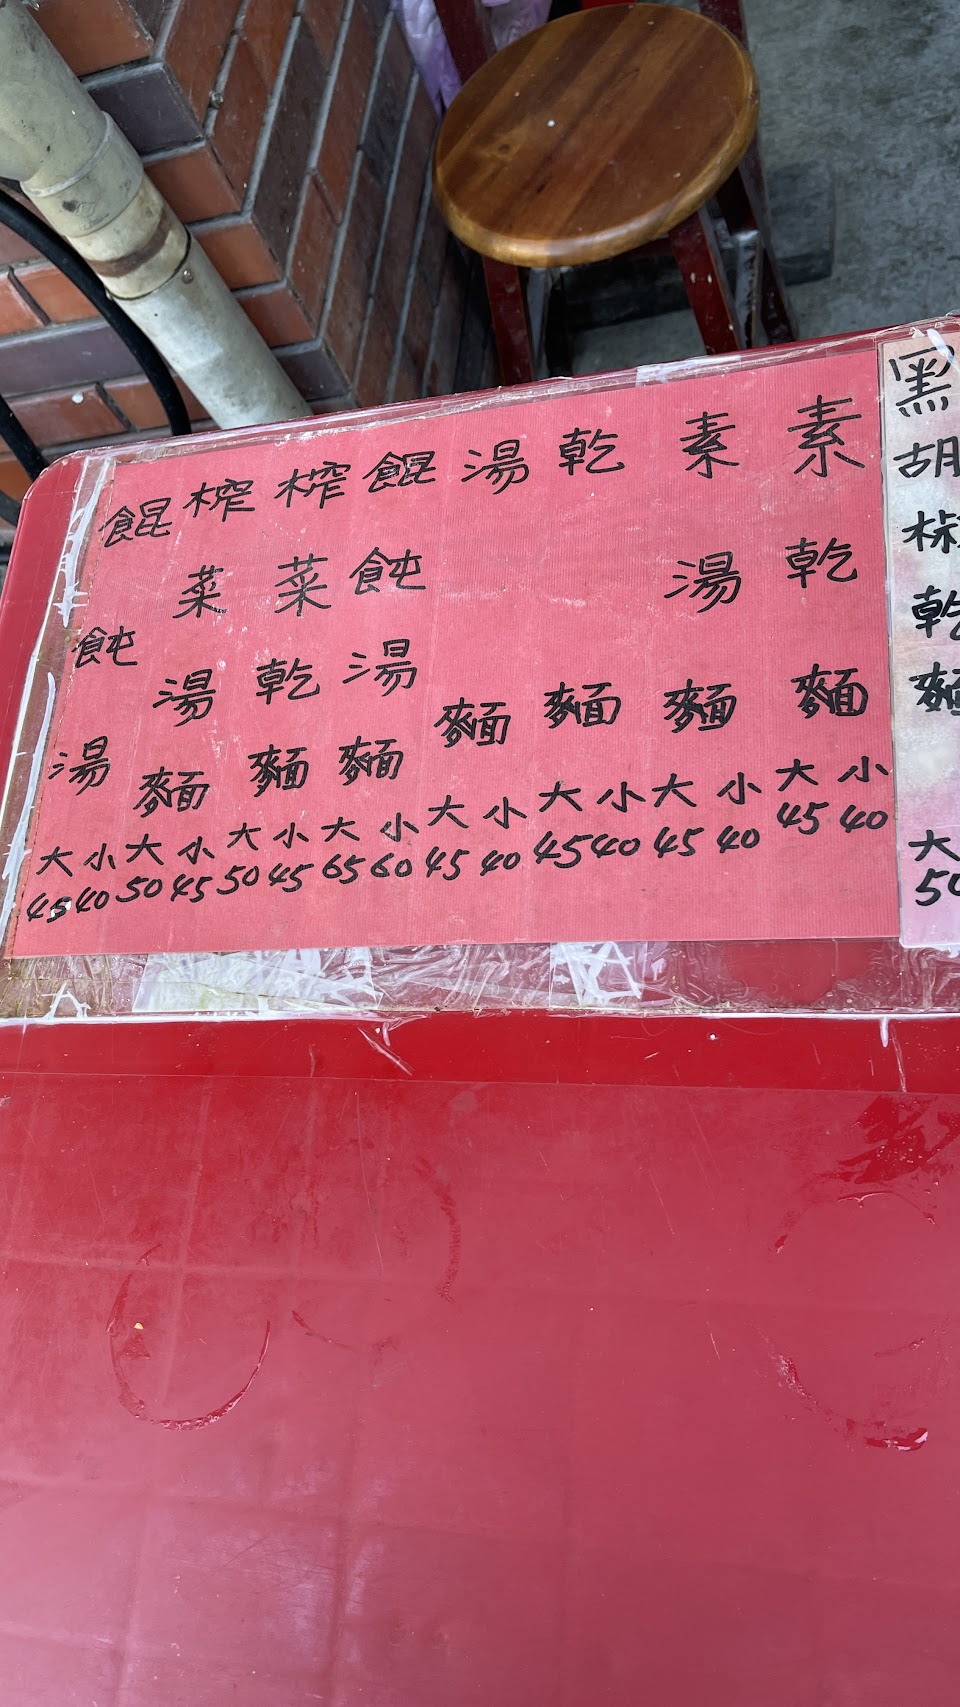 黑胡椒乾麵 大50
素乾麵 大45 小40
素湯麵 大45 小40
乾麵 大45 小40
湯麵 大45 小40
餛飩湯麵 大65 小60
榨菜乾麵 大50 小45
榨菜湯麵 大50 小45
餛飩湯 大45 小40